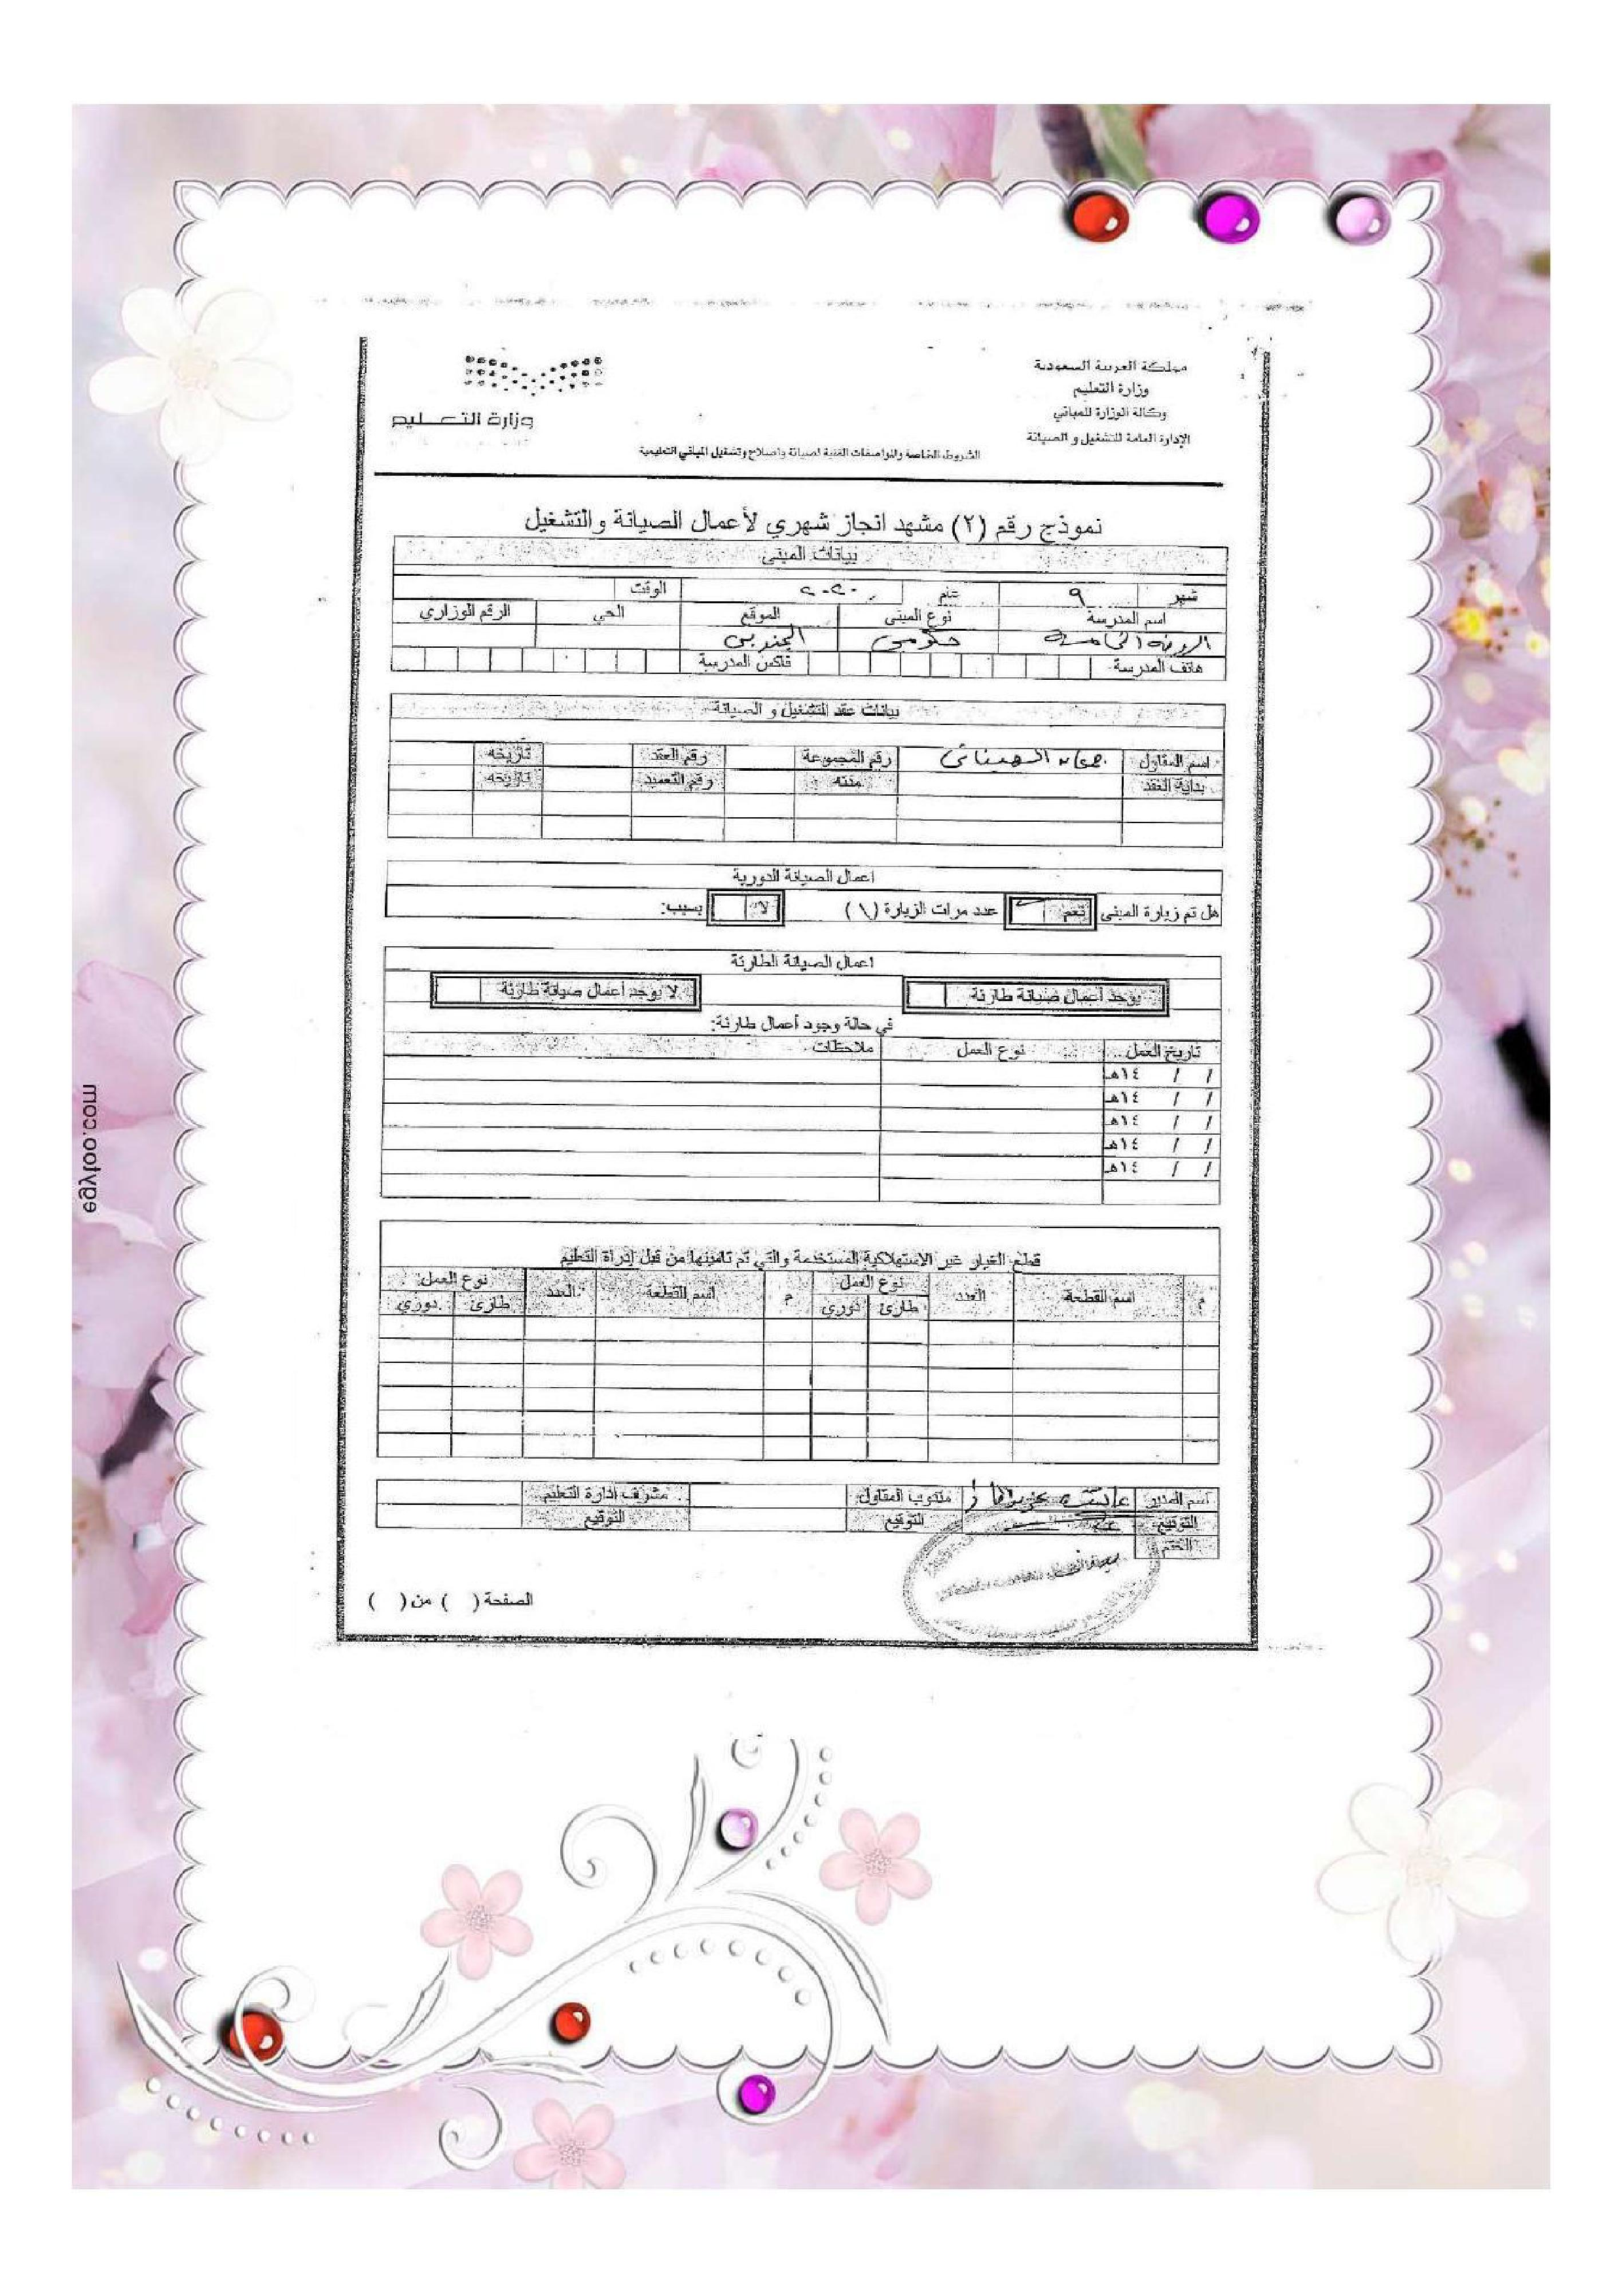 مملكة العربية السعودية
وزارة التعليم
وكالة الوزارة للمباني
الإدارة العامة للتشغيل و الصيانة
وزارة التعليم
الشروط الخاصة والمواصفات الفنية لصيانة وإصلاح وتشغيل المباني التعليمية
نموذج رقم (٢) مشهد انجاز شهري لأعمال الصيانة والتشغيل
بيانات المبنى
شهر ٩ عام ٢٠٢٠ الوقت
اسم المدرسة نوع المبنى الموقع الحي الرقم الوزاري
حكومي الجنوبي
هاتف المدرسة فاكس المدرسة
بيانات عقد التشغيل و الصيانة
اسم المقاول رقم المجموعة رقم العقد تاريخه
بداية العقد مدته رقم التعميد تاريخه
اعمال الصيانة الدورية
هل تم زيارة المبنى نعم عدد مرات الزيارة (١) لا بسبب:
اعمال الصيانة الطارئة
يوجد أعمال صيانة طارئة لا يوجد أعمال صيانة طارئة
في حالة وجود أعمال طارئة:
تاريخ العمل نوع العمل ملاحظات
/ / ١٤هـ
/ / ١٤هـ
/ / ١٤هـ
/ / ١٤هـ
/ / ١٤هـ
قطع الغيار غير الاستهلاكية المستخدمة والتي تم تامينها من قبل إدراة التعليم
م اسم القطعة العدد نوع العمل م اسم القطعة العدد نوع العمل
طارئ دوري طارئ دوري
اسم المدير مندوب المقاول مشرف ادارة التعليم
التوقيع التوقيع التوقيع
الختم
الصفحة ( ) من ( )
egyfoo.com